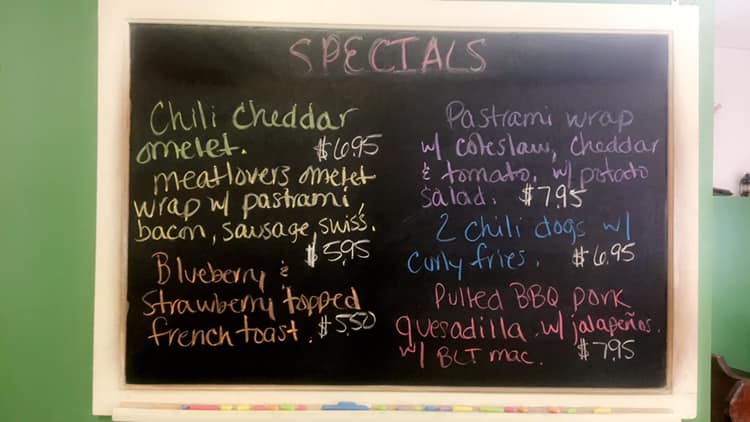 SPECIALS
Chili Cheddar
omelet. $6.95
meatlovers omelet
wrap w/ pastrami,
bacon, sausage, swiss.
$5.95
Blueberry &
Strawberry topped
french toast. $5.50
Pastrami wrap
w/ coleslaw, cheddar
& tomato, w/ potato
salad. $7.95
2 chili dogs w/
curly fries. $6.95
Pulled BBQ pork
quesadilla w/ jalapeños.
w/ BLT mac. $7.95